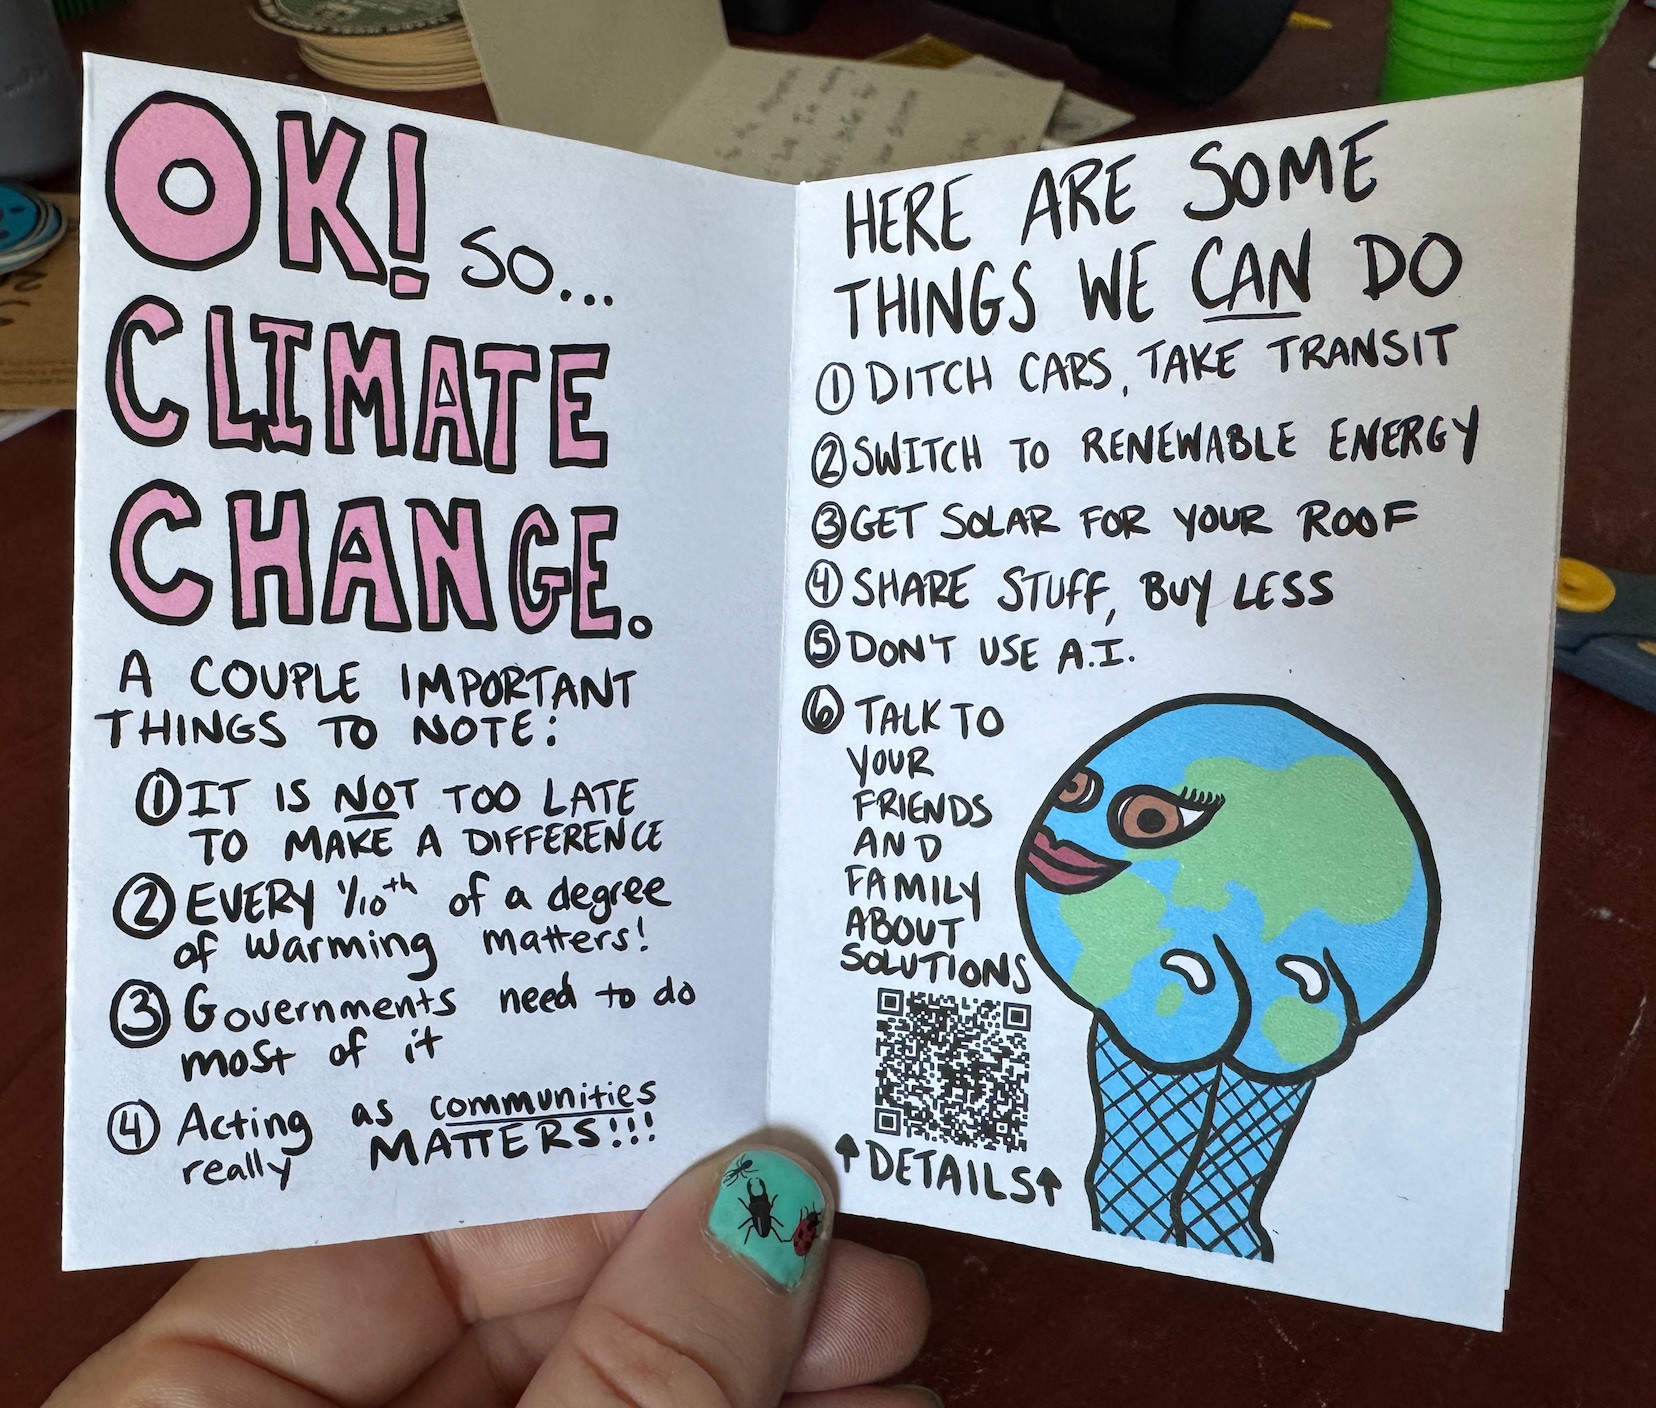 OK! SO...
CLIMATE
CHANGE.
A COUPLE IMPORTANT
THINGS TO NOTE:
① IT IS NOT TOO LATE
TO MAKE A DIFFERENCE
② EVERY 1/10th of a degree
of warming matters!
③ Governments need to do
most of it
④ Acting as communities
really MATTERS!!!
HERE ARE SOME
THINGS WE CAN DO
① DITCH CARS, TAKE TRANSIT
② SWITCH TO RENEWABLE ENERGY
③ GET SOLAR FOR YOUR ROOF
④ SHARE STUFF, BUY LESS
⑤ DON'T USE A.I.
⑥ TALK TO
YOUR
FRIENDS
AND
FAMILY
ABOUT
SOLUTIONS
↑ DETAILS ↑